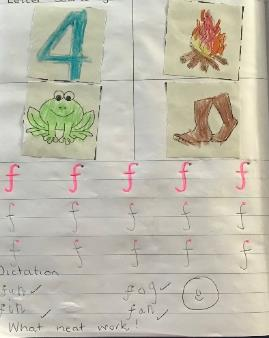 4
f f f f f
f f f f f
f f f f f
Dictation
fun fog
fin fan
What neat work!